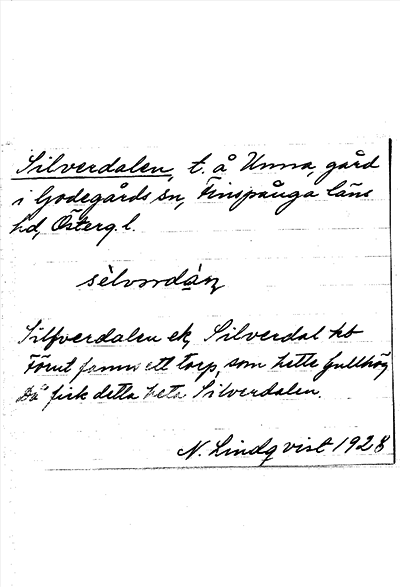 Silverdalen, t. å Unna, gård
i Godegårds sn, Finspånga läns
hd, Österg. l.
Silfverdalen ek, Silverdal hb
Förut fanns ett torp, som hette Gullhög
Då fick detta heta Silverdalen.
N. Lindqvist 1928